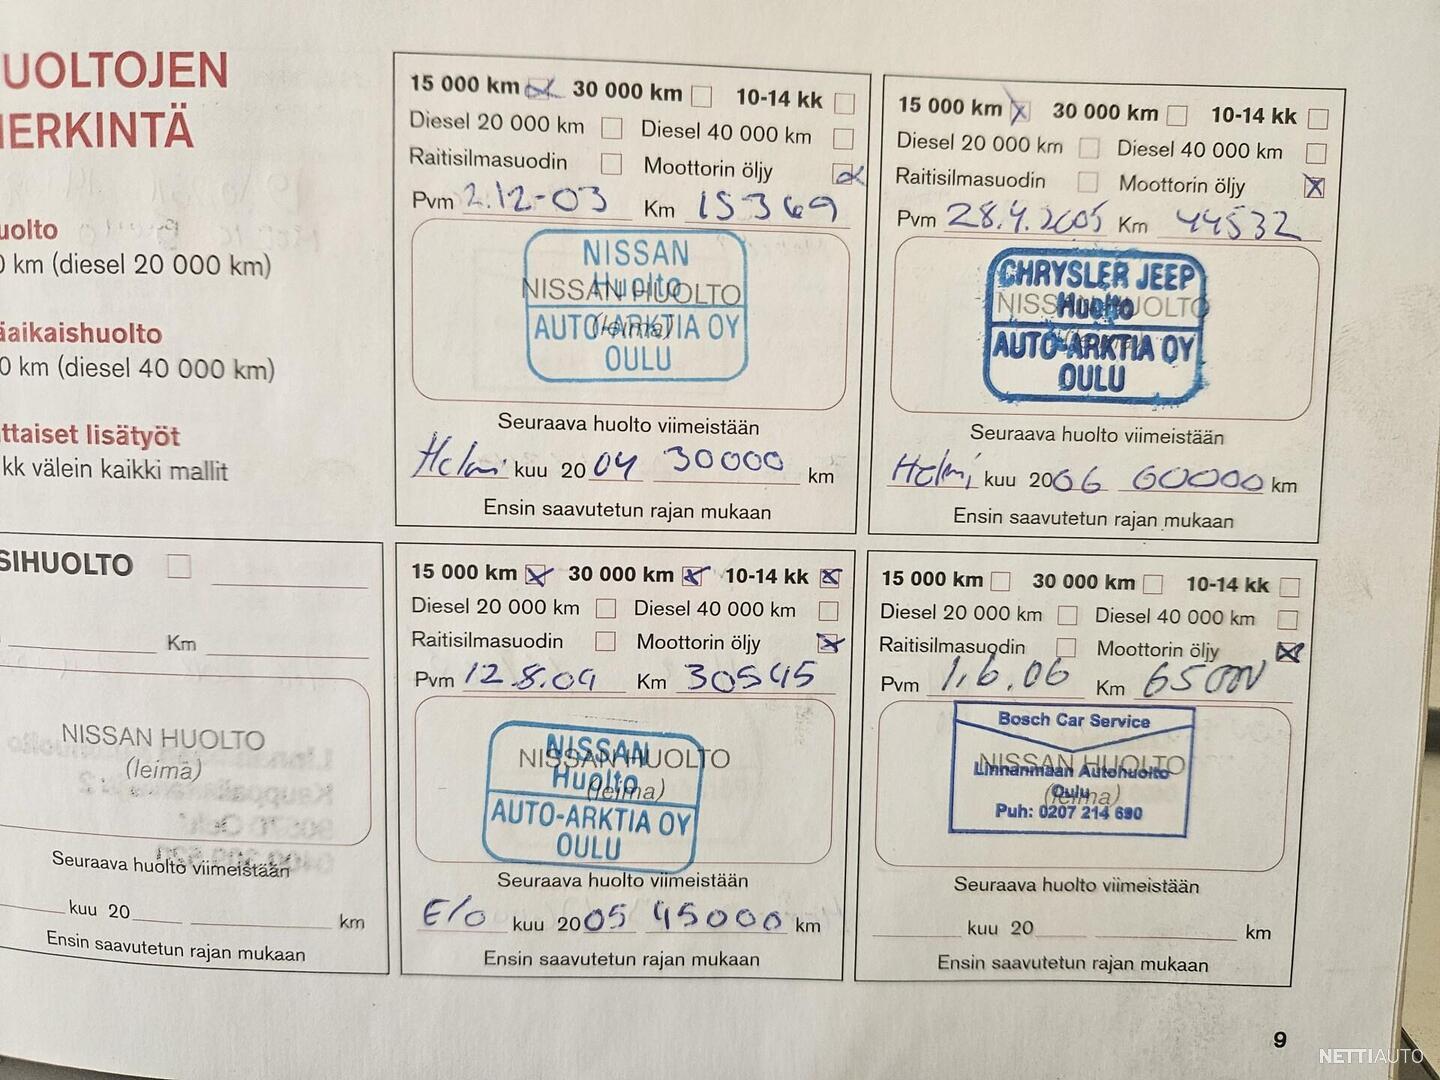 UOLTOJEN
IERKINTÄ
uolto
0 km (diesel 20 000 km)
äaikaishuolto
0 km (diesel 40 000 km)
ttaiset lisätyöt
kk välein kaikki mallit
15 000 km 30 000 km 10-14 kk
Diesel 20 000 km Diesel 40 000 km
Raitisilmasuodin Moottorin öljy
Pvm 2.12-03 Km 15369
NISSAN
Huolto
NISSAN HUOLTO
(leima)
AUTO-ARKTIA OY
OULU
Seuraava huolto viimeistään
Helmi kuu 2004 30000 km
Ensin saavutetun rajan mukaan
15 000 km 30 000 km 10-14 kk
Diesel 20 000 km Diesel 40 000 km
Raitisilmasuodin Moottorin öljy
Pvm 28.4.2005 Km 44532
CHRYSLER JEEP
Huolto
NISSAN HUOLTO
AUTO-ARKTIA OY
OULU
Seuraava huolto viimeistään
Helmi kuu 2006 60000 km
Ensin saavutetun rajan mukaan
SIHUOLTO
Km
NISSAN HUOLTO
(leima)
Seuraava huolto viimeistään
kuu 20 km
Ensin saavutetun rajan mukaan
15 000 km 30 000 km 10-14 kk
Diesel 20 000 km Diesel 40 000 km
Raitisilmasuodin Moottorin öljy
Pvm 12.8.04 Km 30545
NISSAN
Huolto
NISSAN HUOLTO
(leima)
AUTO-ARKTIA OY
OULU
Seuraava huolto viimeistään
Elo kuu 2005 45000 km
Ensin saavutetun rajan mukaan
15 000 km 30 000 km 10-14 kk
Diesel 20 000 km Diesel 40 000 km
Raitisilmasuodin Moottorin öljy
Pvm 1.6.06 Km 65000
Bosch Car Service
NISSAN HUOLTO
Linnanmaan Autohuolto
Oulu
(leima)
Puh: 0207 214 690
Seuraava huolto viimeistään
kuu 20 km
Ensin saavutetun rajan mukaan
9
NETTIAUTO